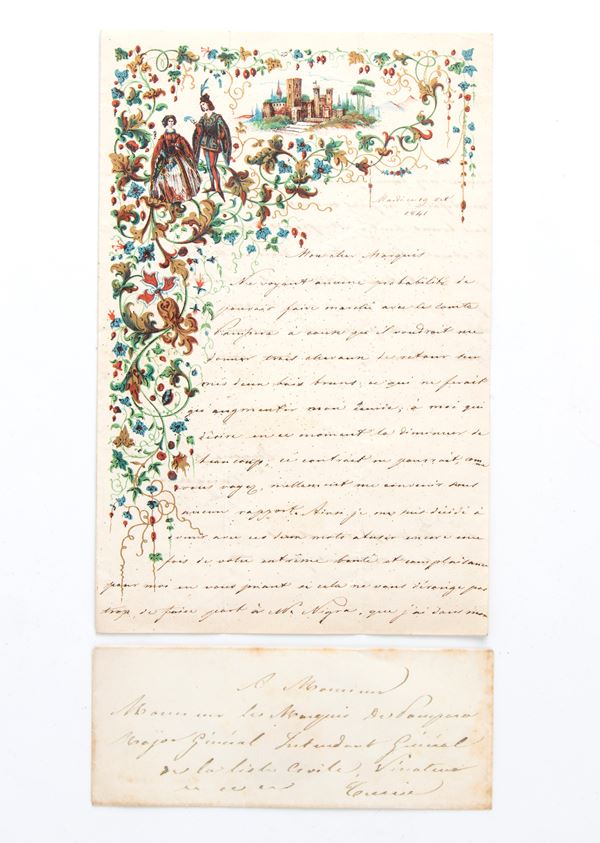 Mardi ce 19 Oct
1841
Mon cher Marquis
Ne voyant aucune probabilité de
pouvoir faire marché avec le comte
à cause qu'il voudrait me
donner trois chevaux de retour sur
mes deux bais bruns; ce qui ne ferait
qu'augmenter mon écurie; à moi qui
désire en ce moment la diminuer de
beaucoup; ce contrat ne pourrait, comme
vous voyez, nullement me convenir sous
aucun rapport. Ainsi je me suis décidé à
venir avec ces deux mots abuser encore une
fois de votre extrême bonté et complaisance
pour moi en vous priant si cela ne vous dérange pas
trop, de faire part à Mr Nigra, que j'ai dans mon
A Monsieur
Monsieur le Marquis de
Major Général Intendant Général
de la liste Civile, Sénateur